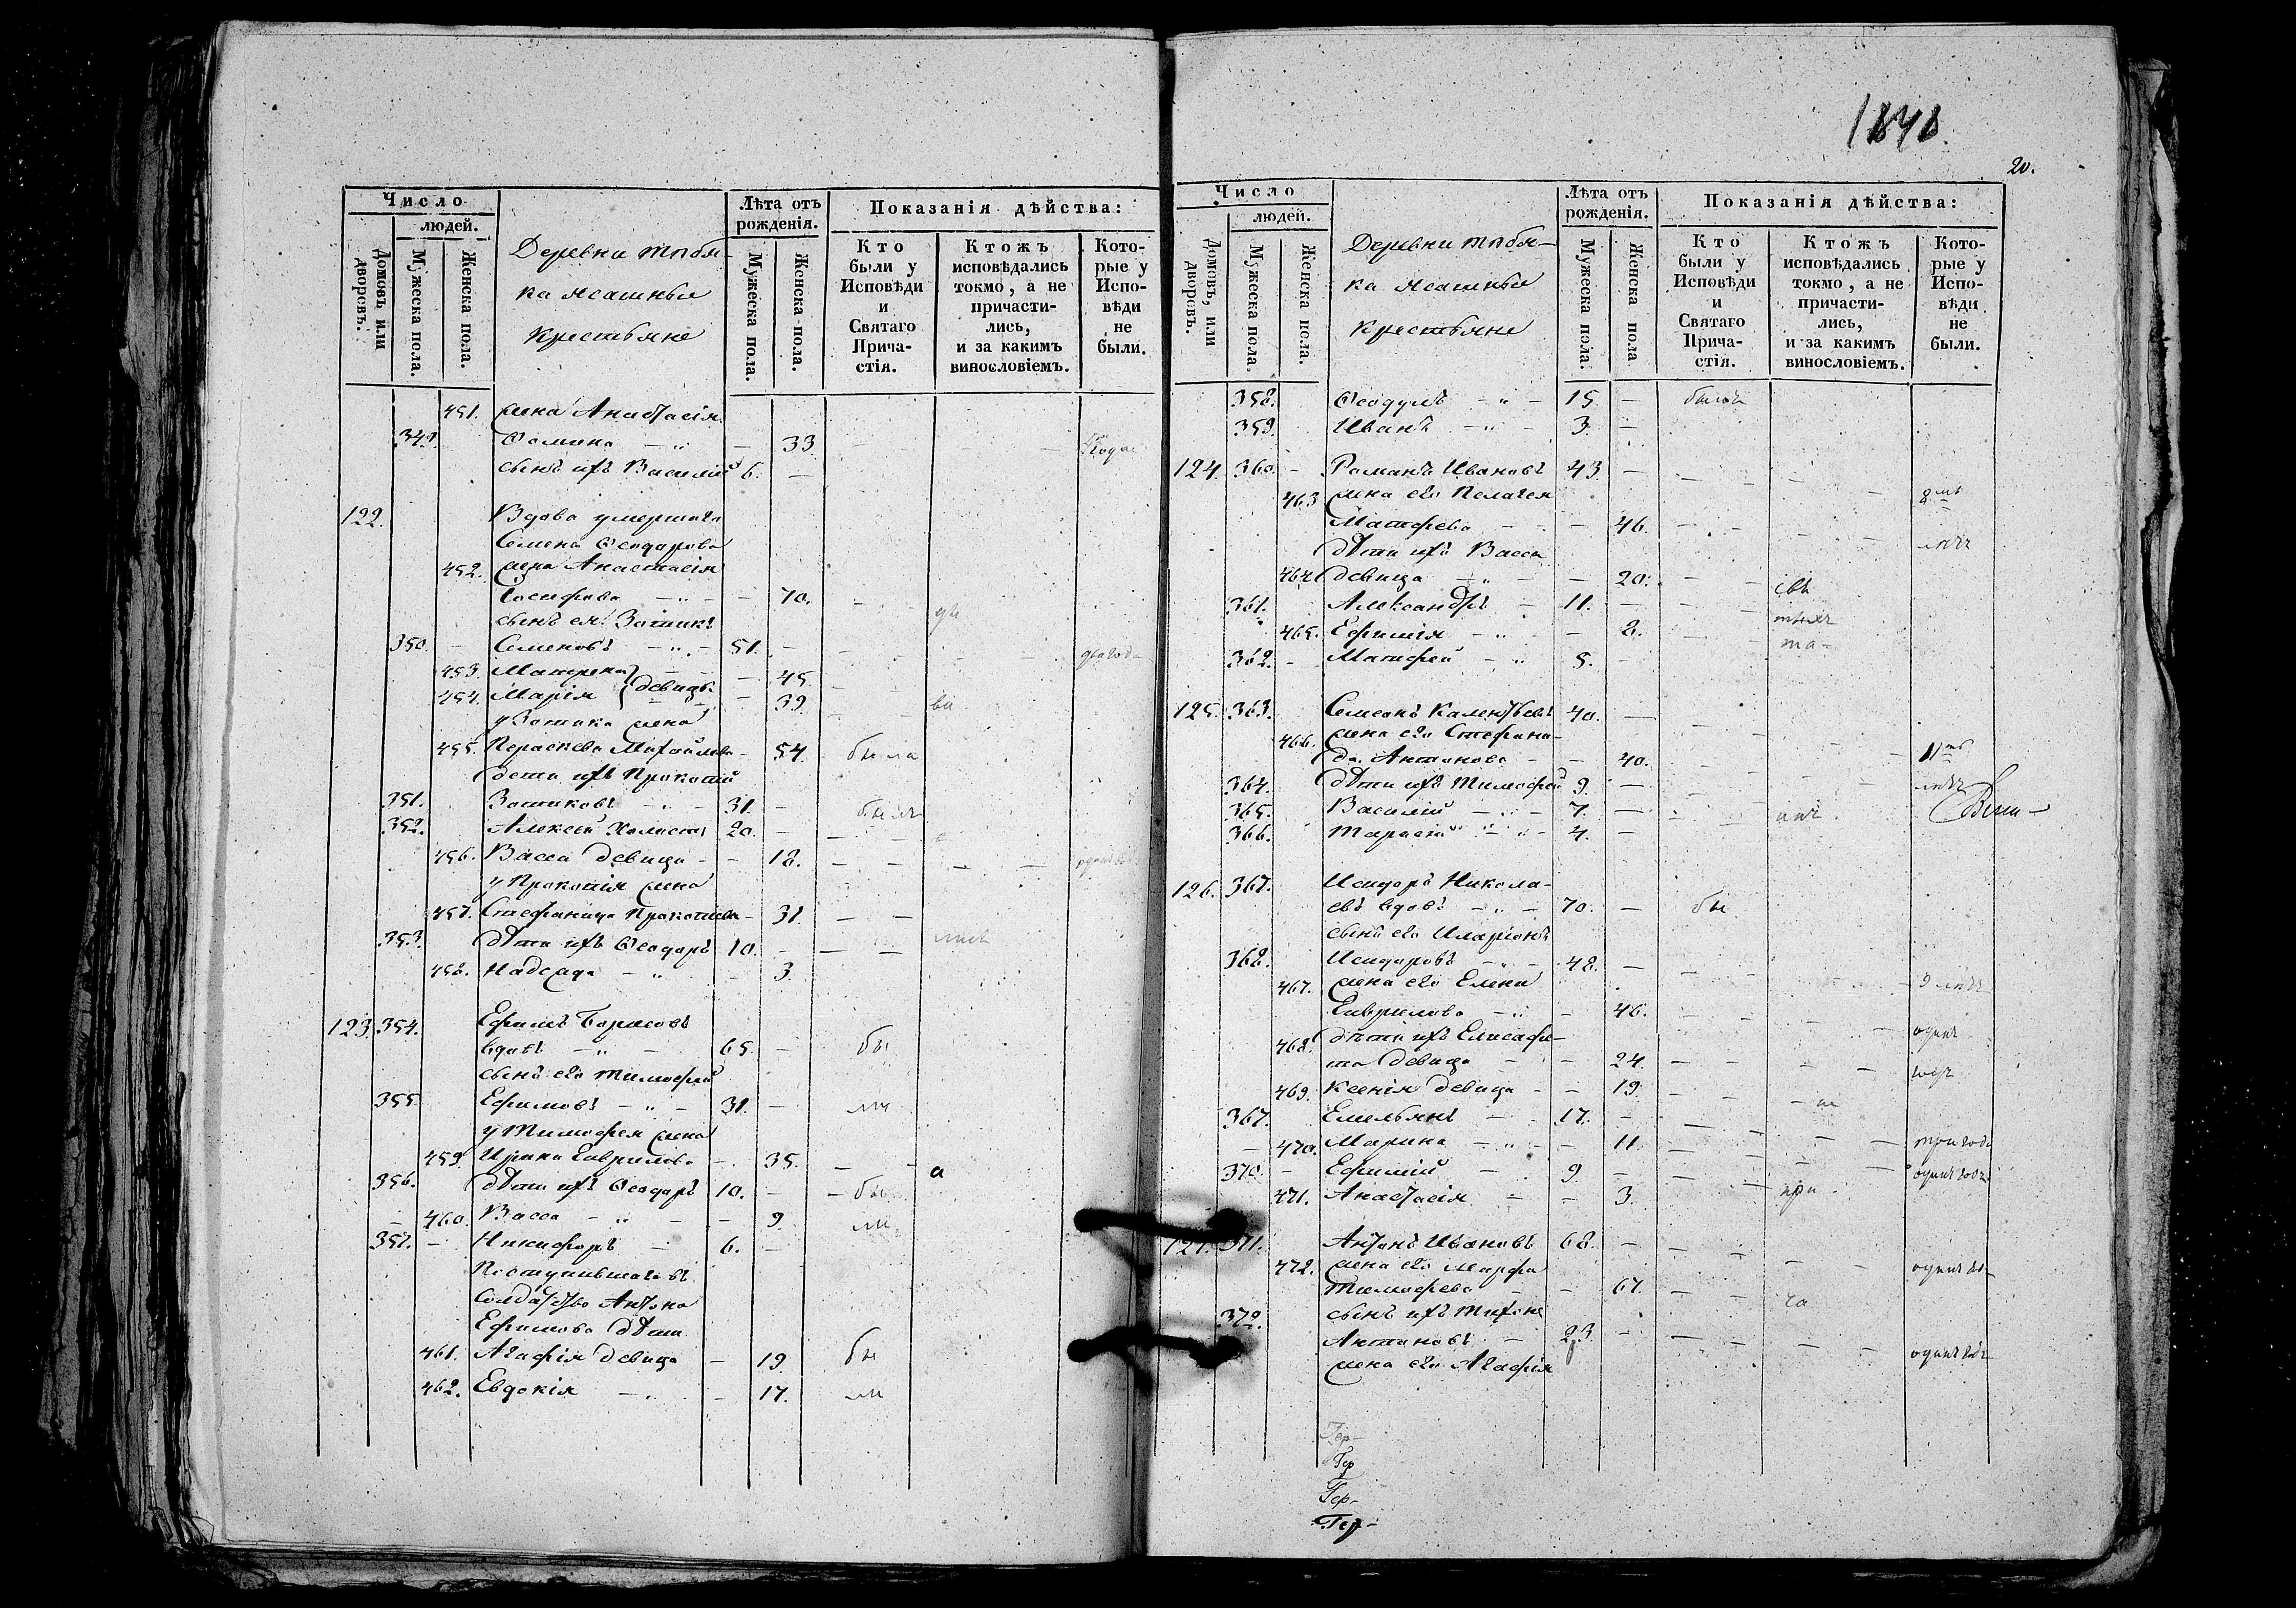 1840.
20.
Число
людей.
Домовъ или дворовъ.
Мужеска пола.
Женска пола.
Деревни
ка Ясашныя
крестьяне
Лѣта отъ рожденія.
Мужеска пола.
Женска пола.
Показанія дѣйства:
Кто были у Исповѣди и Святаго Прича-стія.
Ктожъ исповѣдались токмо, а не причасти-лись, и за какимъ винословіемъ.
Кото-рые у Испо-вѣди не были.
451. жена Анастасія
349. Фомина — „ — — 33.
сынъ ихъ Василій 6. —
122. Вдова умершаго
Семена Ѳеодорова
452. жена Анастасія
Іосифова — „ — — 70.
сынъ ея Зотикъ
350. — Семеновъ — „ — 51. —
453. Матрена — 45.
454. Марія девицы — 39.
у Зотика жена
455. Параскева Михайлова — 54. была
дети ихъ Прокопій
351. Зотиковъ — „ — 31. —
352. Алексей Холостъ 20. —
456. Васса девица — — 18. — —
у Прокопія жена
457. Стефанида Прокопіева — 31. — —
353. дѣти ихъ Ѳеодоръ 10. — — —
458. Надежда — „ — 3.
123. 354. Ефимъ Борисовъ
вдовъ — „ — 65. — бы
сынъ его Тимофей
355. Ефимовъ — „ — 31. — ли
у Тимофея жена
459. Ирина Гаврилова — 35. — — а
356. дѣти ихъ Ѳеодоръ 10. — — бы
— 460. Васса — „ — — 9. ли
357. — Никифоръ — 6. —
Поступившаго въ
Солдатство Антона
Ефимова дѣти
461. Агафія девица — 19. бы
462. Евдокія — „ — 17. ли
Число
людей.
Домовъ, или дворовъ.
Мужеска пола.
Женска пола.
Деревни
ка Ясашныя
Крестьяне
Лѣта отъ рожденія.
Мужеска пола.
Женска пола
Показанія дѣйства:
Кто были у Исповѣди и Святаго Прича-стія.
Ктожъ исповѣдались токмо, а не причасти-лись, и за какимъ винословіемъ.
Кото-рые у Испо-вѣди не были.
358. Ѳеодулъ — „ — 15. —
359. Иванъ — „ — 3. —
124. 360. — Романъ Ивановъ 43. —
463 жена его Пелагея
Матфева — — — 46. —
дѣти ихъ Васса
464 девица — „ — — 20. —
361. Александръ — 11. —
465. Ефимія — „ — 8.
362. — Матфей — „ 5. —
125. 363. Симеонъ Калентьевъ 40. —
466. жена его Стефани-
да Антонова — — 40.
364. дѣти ихъ Тимофей 9. — лѣтъ
365. Василій — „ — 7. —
366. Тарасій — „ — 4. —
126. 367. Исидоръ Никола-
евъ вдовъ — „ — 70. — бы
сынъ его Иларіонъ
368. Исидоровъ — „ — 48. —
467. жена его Елена
Гаврилова — „ — 46.
468. дѣти ихъ Елисаве-
та девица — — 24. —
469. Ксенія девица — — 19.
367. Емельянъ — — 17. —
— 470. Марина — „ — — 11. три года
370. — Ефимій — 9. —
471. Анастасія — — 3.
127. 371. Антонъ Ивановъ 68. —
472. жена его Марфа
Тимофева — — 67.
372. сынъ ихъ Тихонъ
Антоновъ — 23. —
жена его Агафія
Гер-
Гер
Гер-
Гер-